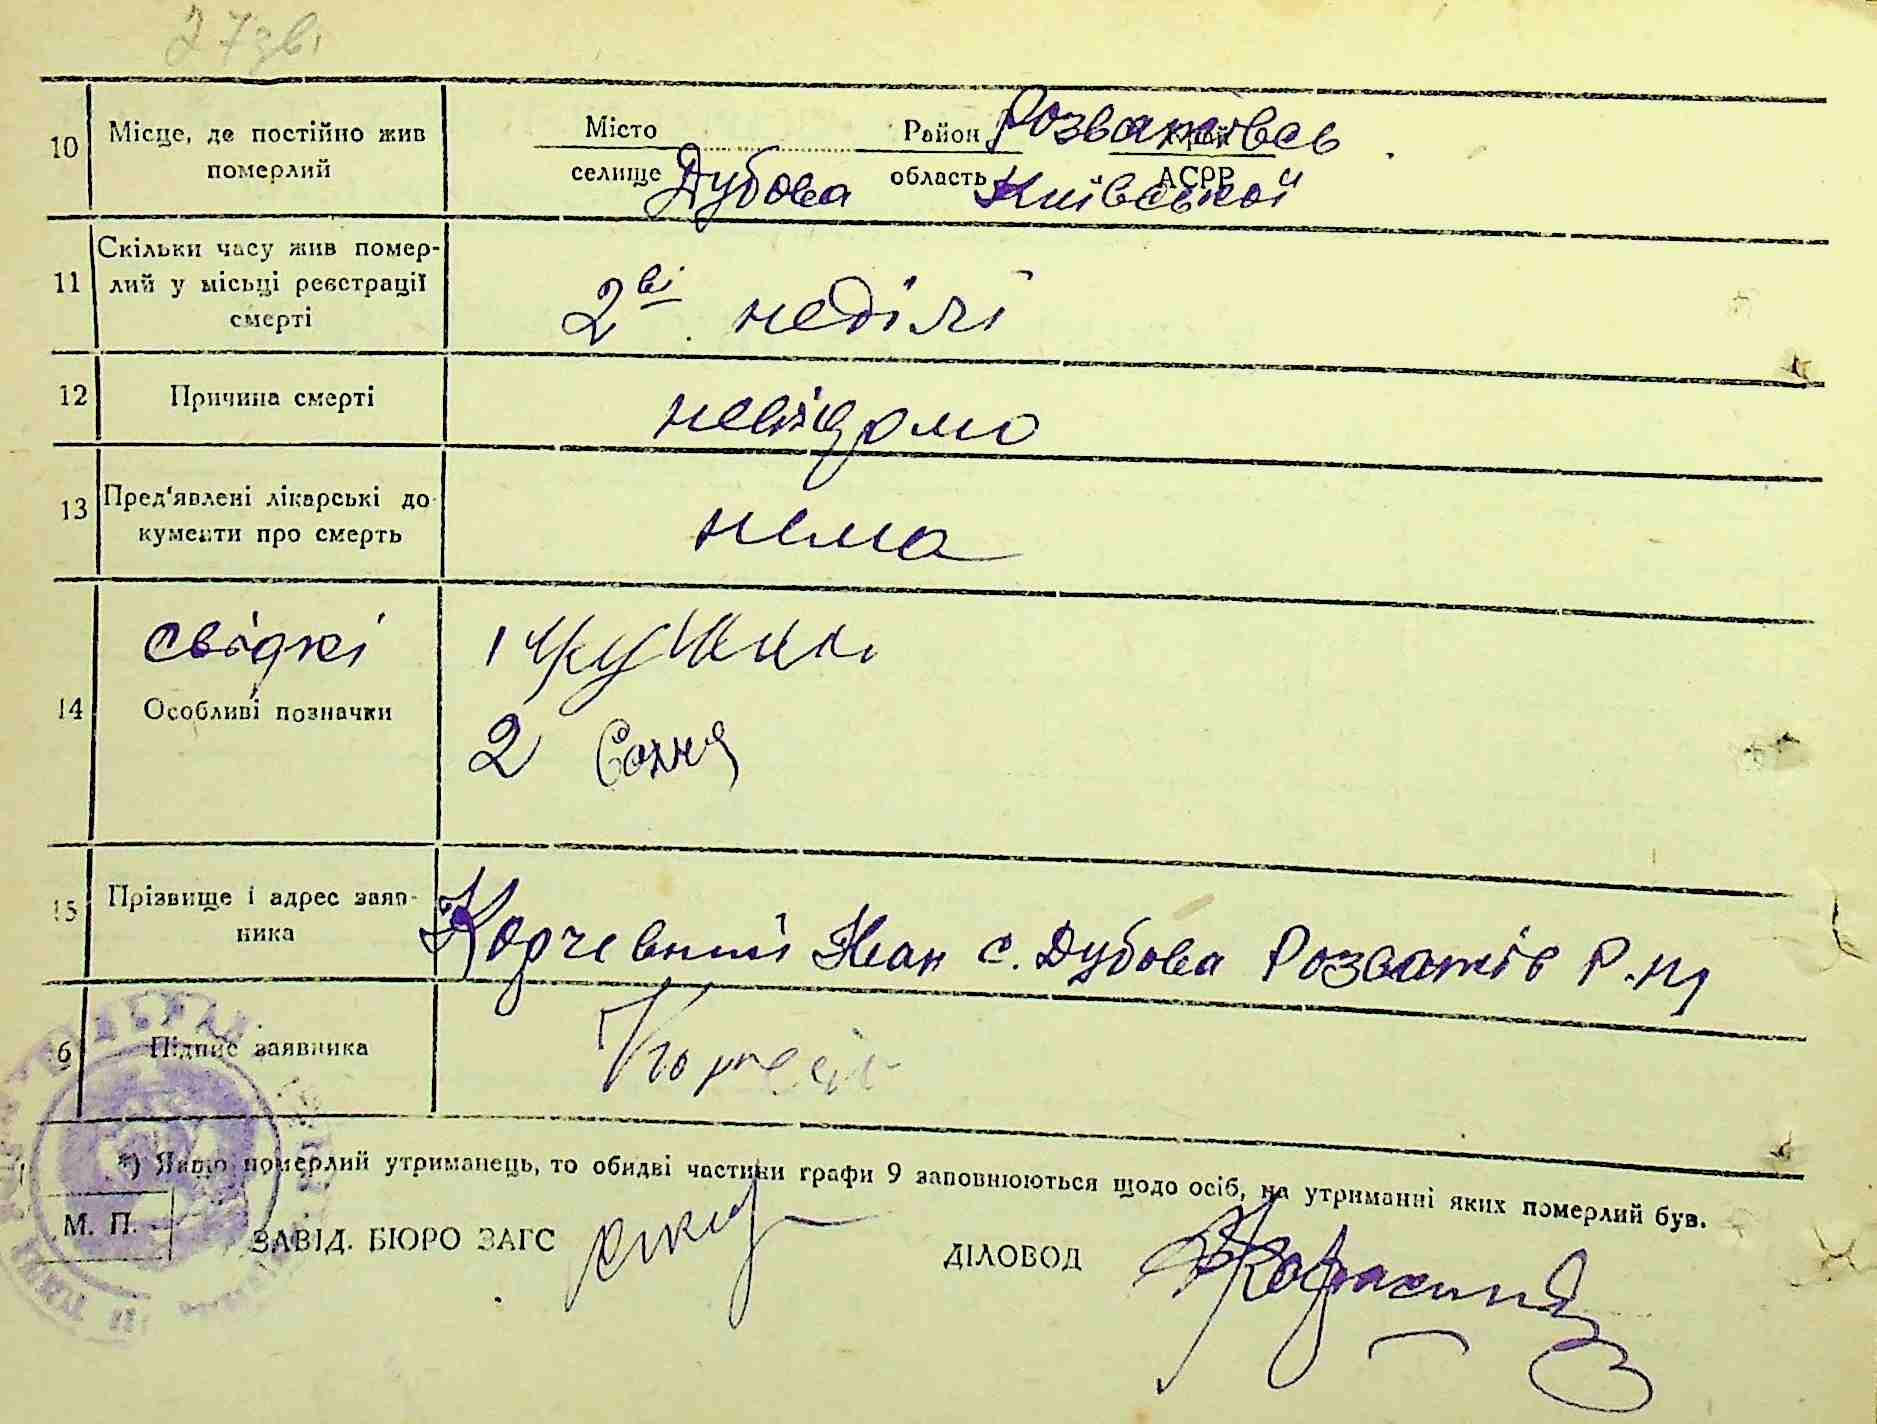 27зв.
10 Місце, де постійно жив померлий
Місто Район Розважівсь
селище Дубова область Київської АСРР
11 Скільки часу жив помер-
лий у місьці реєстрації
смерті
2ві неділі
12 Причина смерті невідомо
13 Пред'явлені лікарські до-
кументи про смерть
нема
свідкі 1
14 Особливі позначки
2 Сохня
15 Прізвище і адрес заяв-
ника
Корчевний Іван с. Дубова Розважів р-ну
6 Підпис заявника
*) Якщо померлий утриманець, то обидві частини графи 9 заповнюються щодо осіб, на утриманні яких померлий був.
М. П. ЗАВІД. БЮРО ЗАГС ДІЛОВОД